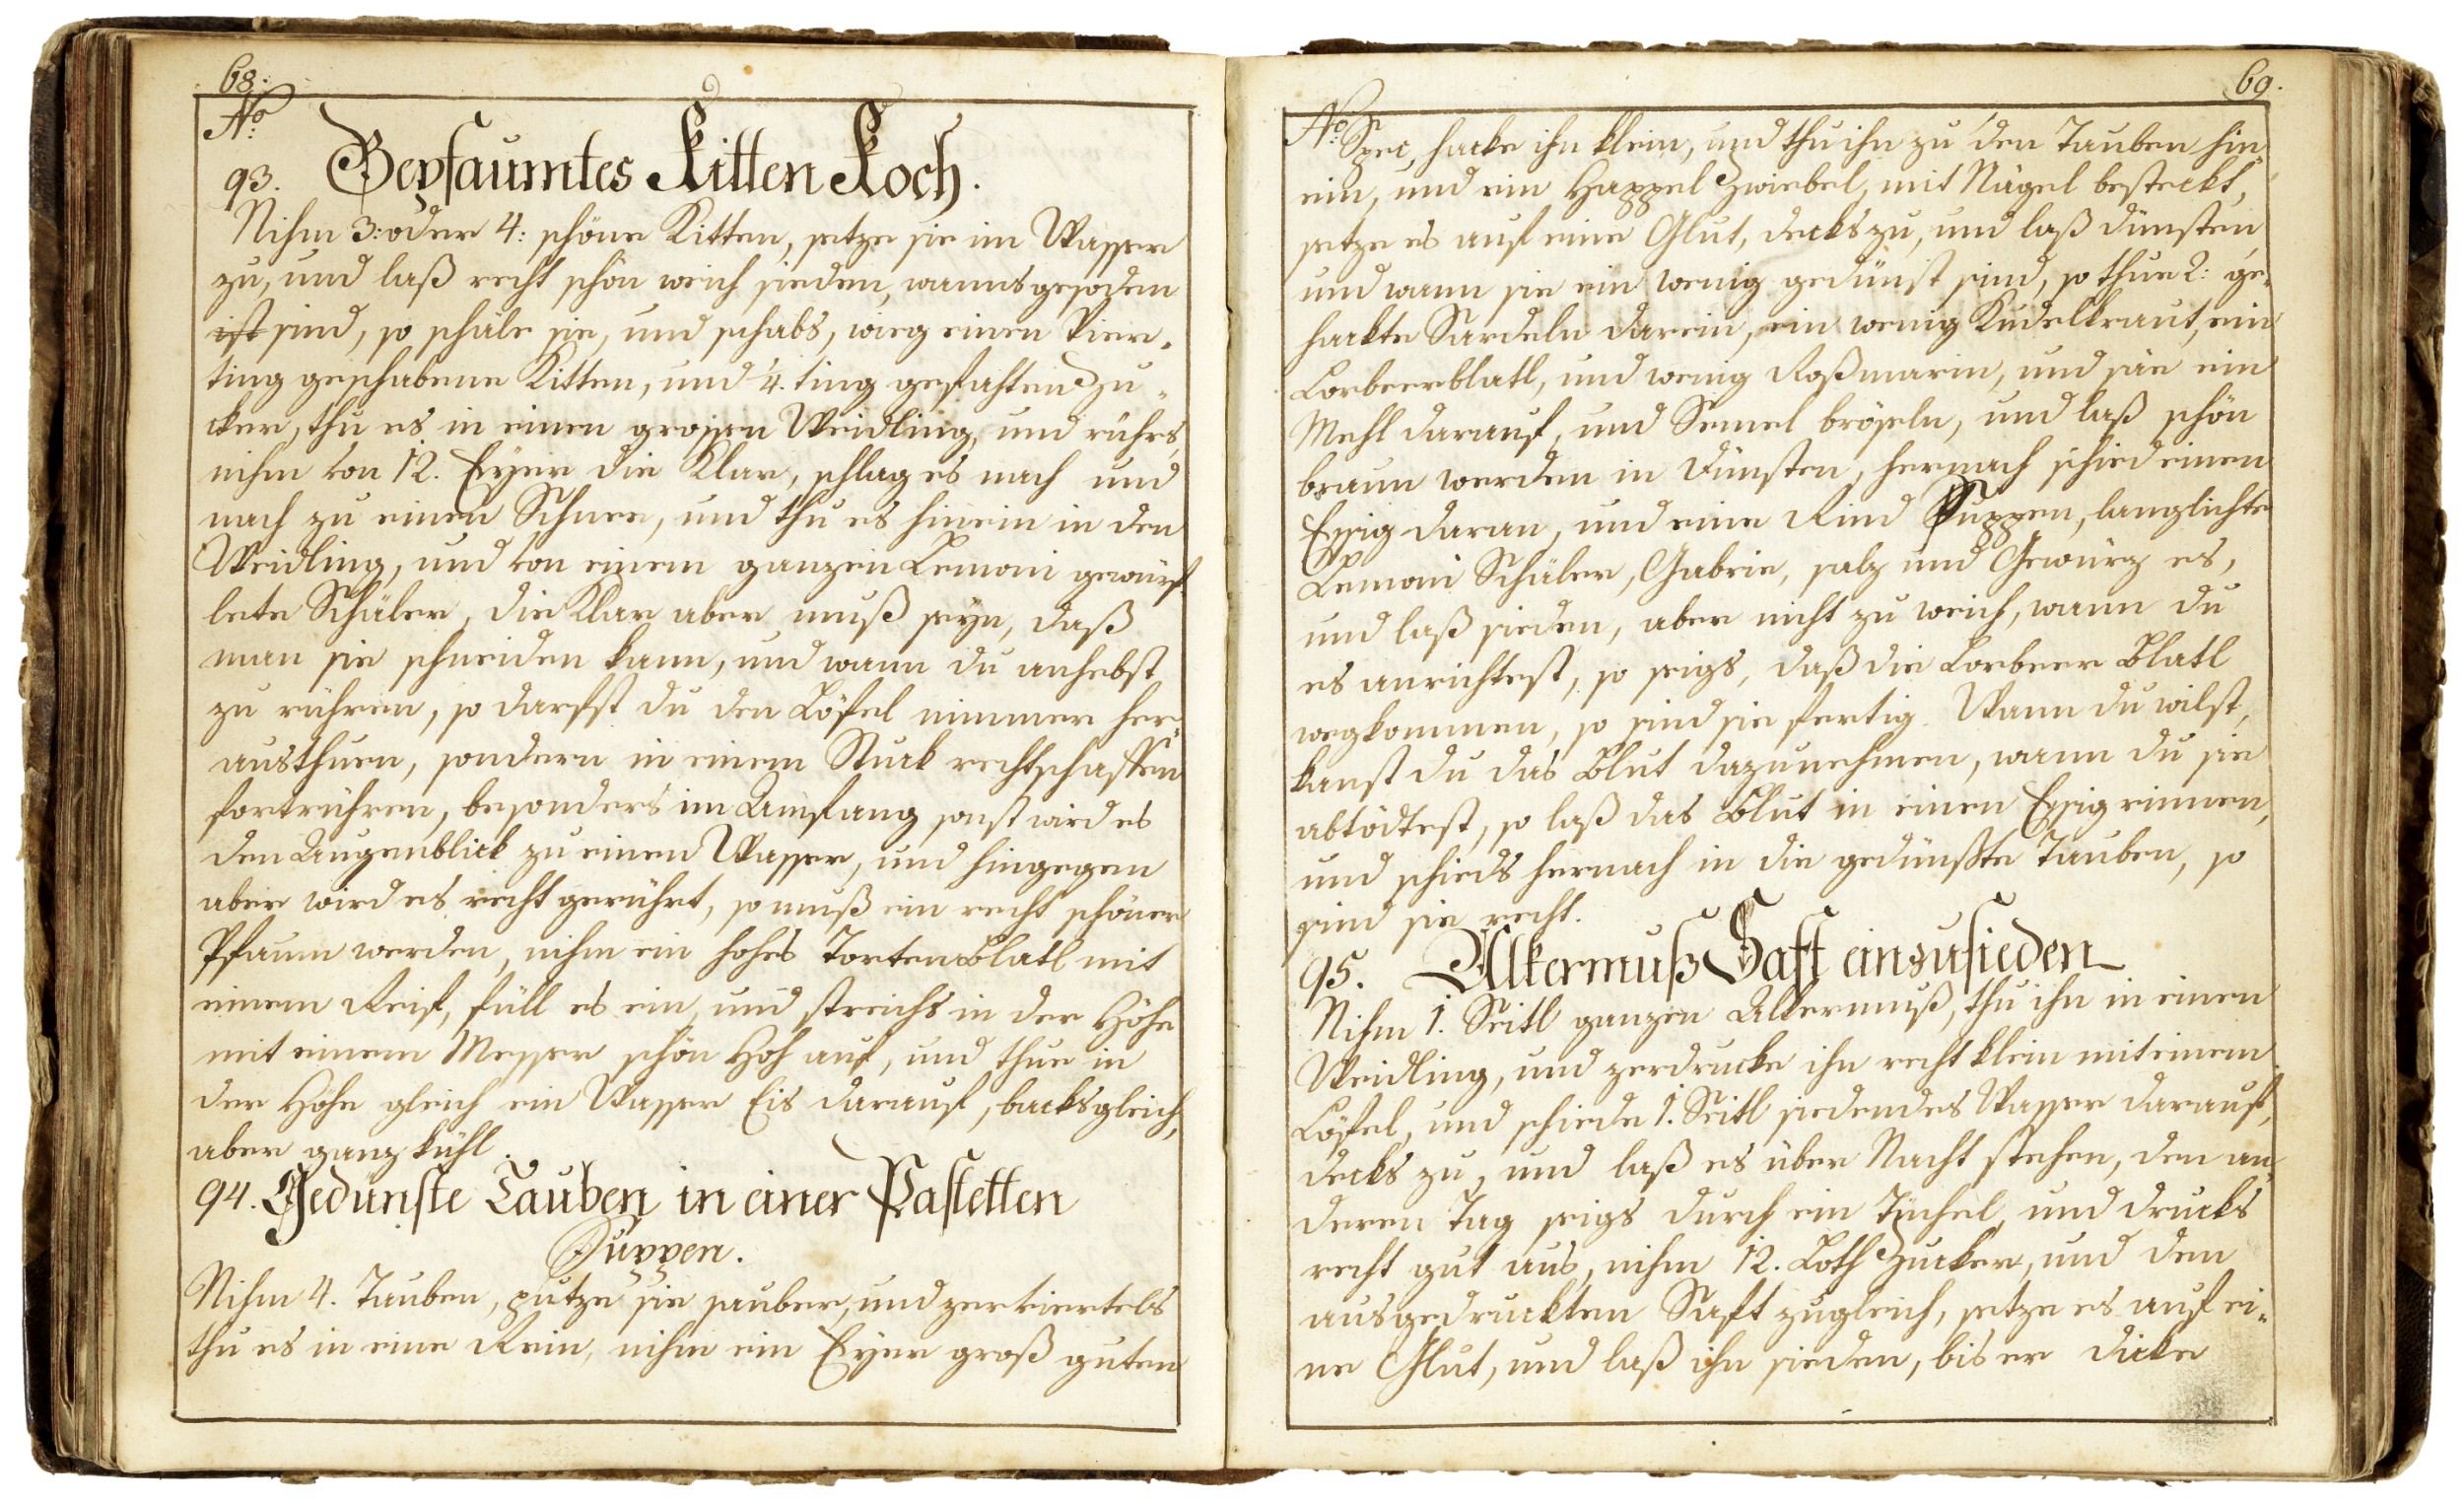 68.
No.
93. Gepfaumtes Kitten Koch.
Nihm 3: oder 4: schöne Kitten, setze sie im Wasser
zu, und laß recht schön weich sieden, wanns gesoden
ist sind, so schäle sie, und schabs, wieg einen Vier„
ting geschabene Kitten, und 4. ting gefähten Zu„
cker, thu es in einen grossen Weidling, und rührs,
nihm von 12. Eyeir die Klar, schlag es nach und
nach zu einen Schnee, und thu es hinein in den
Weidling, und von einem ganzen Lemoni gewürf
lete Schäler, die Klar aber muß seyn, daß
man sie schneiden kann, und wann du anhebst
zu rühren, so darfst du den Löfel nimmer her„
austhuen, sondern in einem Stuck rechtschaffen
fortrühren, besonders im Anfang sonst wird es
den Augenblick zu einen Wasser, und hingegen
aber wird es recht gerührt, so muß ein recht schöner
Pfaum werden, nihm ein hohes Torten Blatl mit
einem Reif, füll es ein, und streichs in der Höhe
mit einem Messer schön Hoh auf, und thue in
der Höhe gleich ein Wasser Eis darauf, backs gleich,
aber ganz kühl.
94. Gedünste Tauben in einer Pastetten
Suppen.
Nihm 4. Tauben, putze sie sauber, und zerviertels
thu es in eine Rein, nihm ein Eyer groß guten
69.
No. Spec, hacke ihn klein, und thu ihn zu den Tauben hin„
ein, und ein Happel Zwiebel, mit Nägel besteckt,
setze es auf eine Glut, decks zu, und laß dünsten,
und wann sie ein wenig gedünst sind, so thue 2: ge„
hackte Sardeln darein, ein wenig Kudelkraut, ein
Lorbeerblatl, und wenig Roßmarin, und säe ein
Mehl darauf, und Semel bröseln, und laß schön
braun werden in dünsten, hernach schied einen
Essig daran, und eine Rind Suppen, langlichte
Lemoni Schäler, Gabrie, salz und Gewürz es,
und laß sieden, aber nicht zu weich, wann du
es anrichtest, so seigs, daß die Lorbeer Blatl
wegkommen, so sind sie fertig. Wann du wilst,
kanst du das Blut dazunehmen, wann du sie
abtödtest, so laß das Blut in einen Essig rinnen,
und schieds hernach in die gedünßte Tauben, so
sind sie recht.
95. Alkermuß Saft einzusieden
Nihm 1. Seitl ganzen Alkermuß, thu ihn in einen
Weidling, und zerdrucke ihn recht klein mit einem
Löfel, und schiede 1. Seitl siedendes Wasser darauf,
decks zu, und laß es über Nacht stehen, den an„
deren Tag seigs durch ein Tüchel, und drucks
recht gut aus, nihm 12. Loth Zucker, und den
ausgedruckten Saft zugleich, setze es auf ei„
ne Glut, und laß ihn sieden, bis er dicke